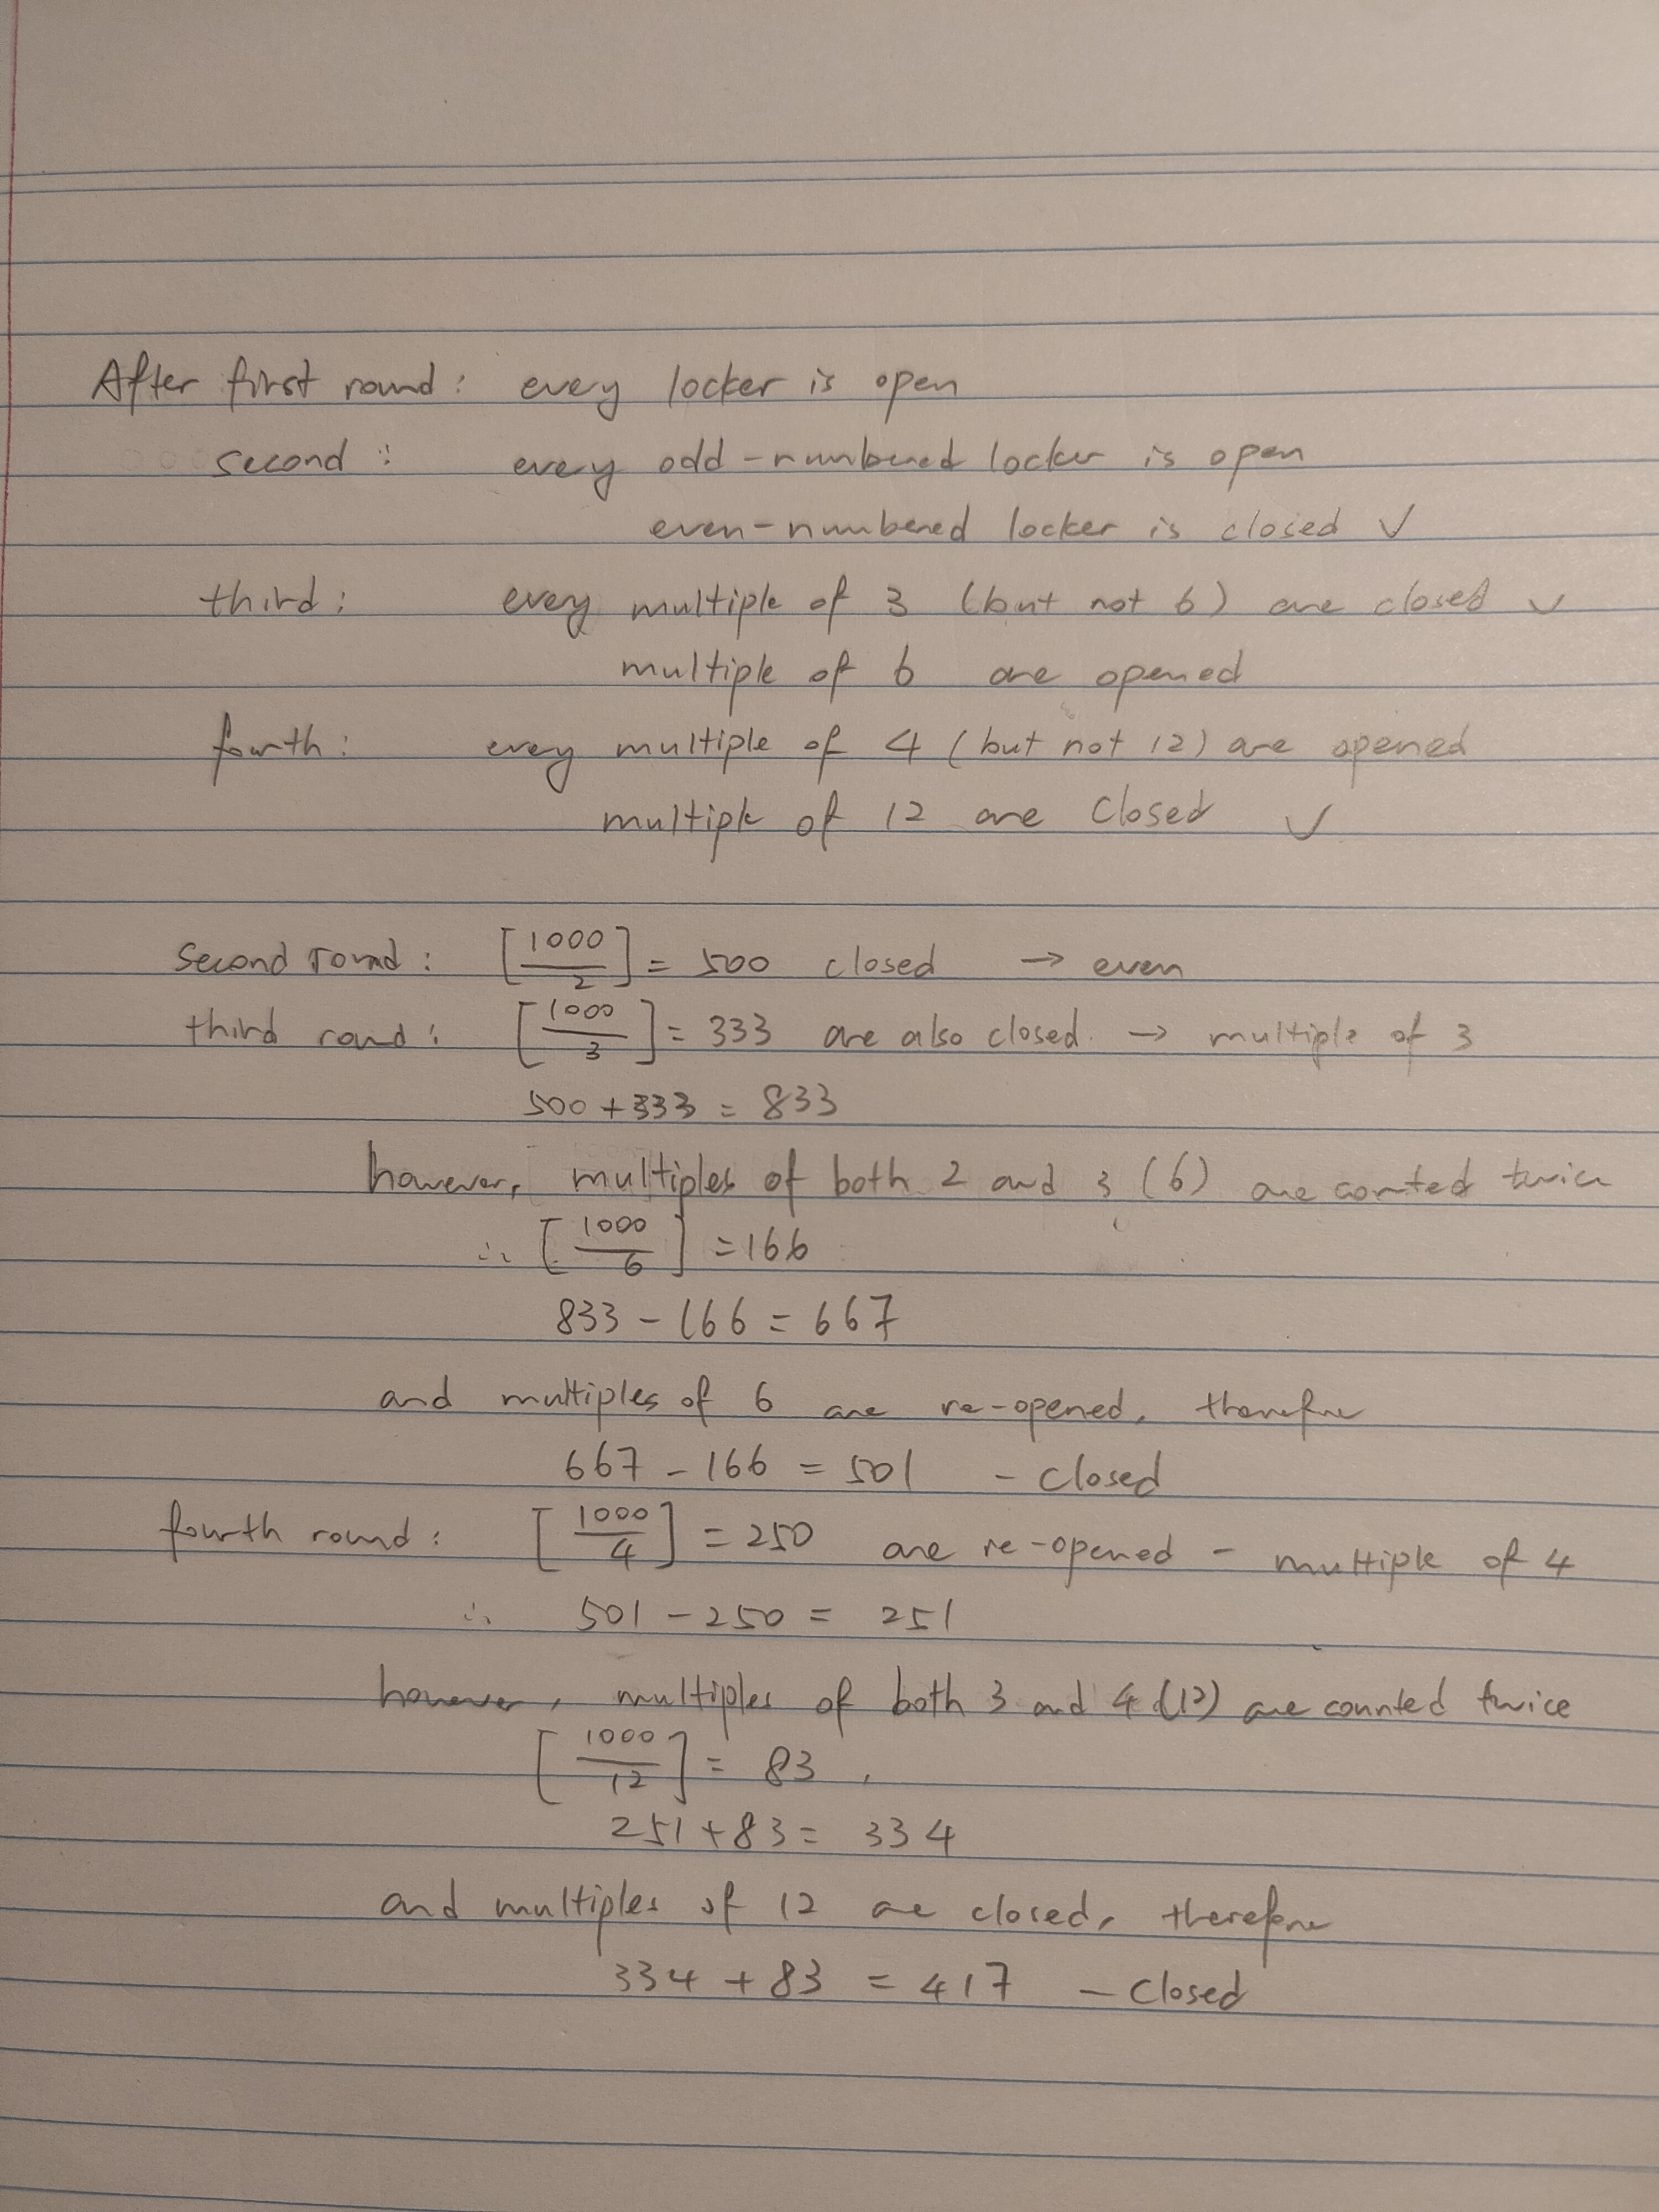 After first round: every locker is open
second: every odd-numbered locker is open
even-numbered locker is closed ✓
third: every multiple of 3 (but not 6) are closed ✓
multiple of 6 are opened
fourth: every multiple of 4 (but not 12) are opened
multiple of 12 are closed ✓
Second round: [1000/2] = 500 closed → even
third round: [1000/3] = 333 are also closed. → multiple of 3
500 + 333 = 833
however, multiples of both 2 and 3 (6) are counted twice
∴ [1000/6] = 166
833 - 166 = 667
and multiples of 6 are re-opened, therefore
667 - 166 = 501 - closed
fourth round: [1000/4] = 250 are re-opened - multiple of 4
∴ 501 - 250 = 251
however, multiples of both 3 and 4 (12) are counted twice
[1000/12] = 83,
251 + 83 = 334
and multiples of 12 are closed, therefore
334 + 83 = 417 - closed